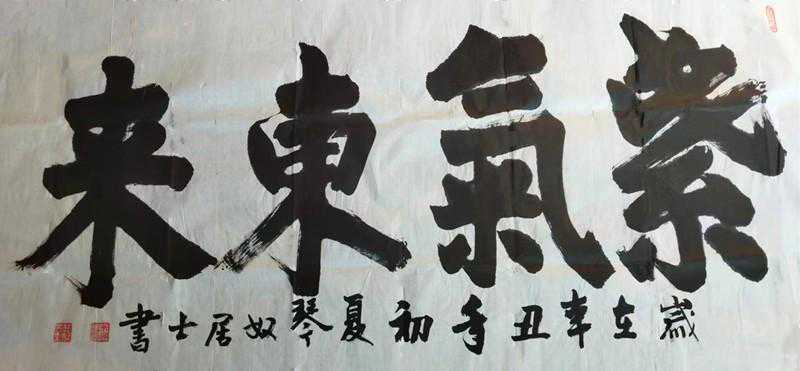 紫氣東来
歲在辛丑年初夏琴奴居士書